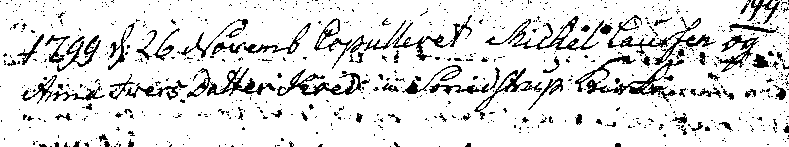 1799 d: 26 Novemb Copulleret Michel Laursen og
Anna Ivers Datter Kved i Sovidstrup Kirke